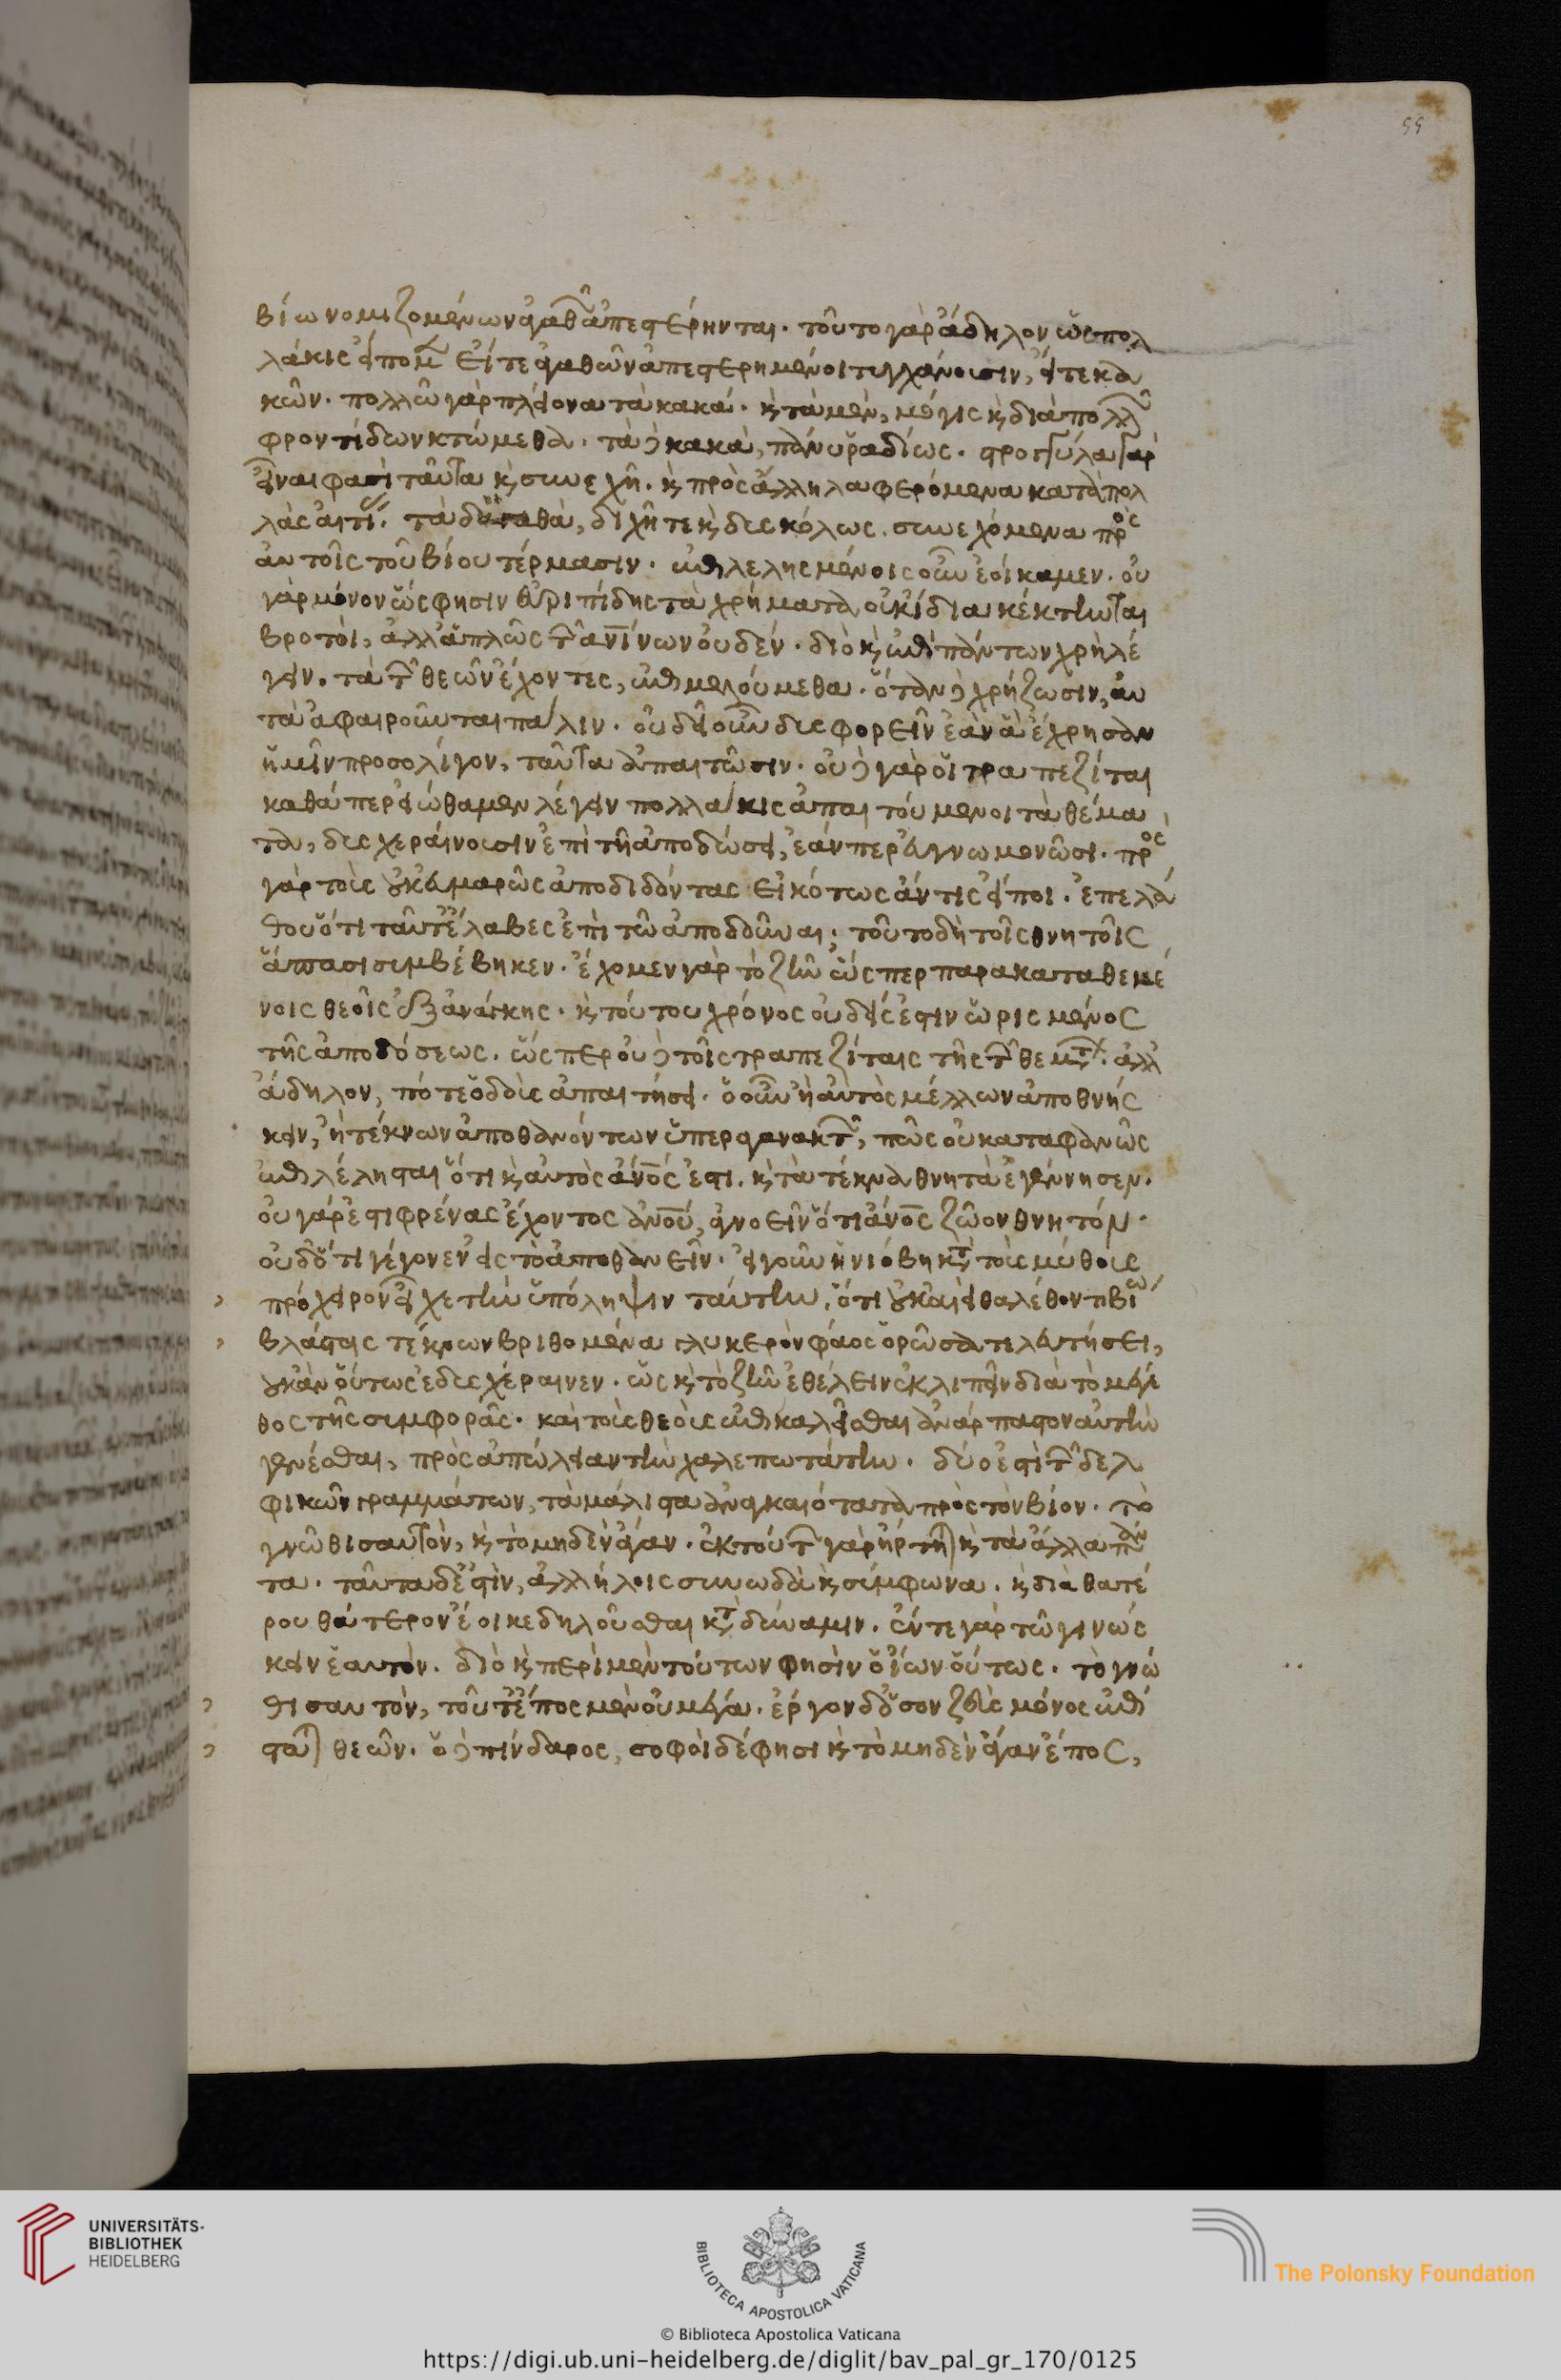 55
βίω νομιζομένων ἀγαθῶν ἀπεστέρηνται. τοῦτο γὰρ ἄδηλον ὡς πολ
λάκις εἴπομεν εἴτε ἀγαθῶν ἀπεστερημένοι τυγχάνουσιν, εἴτε κα
κῶν. πολλῶ γὰρ πλείονα τὰ κακά. κ τὰ μὲν, μόγις κ διὰ πολλῶν
φροντίδων κτώμεθα. τὰ δὲ κακὰ, πάνυ ῥαδίως. στρογγύλα γὰρ
εἶναι φασὶ ταῦτα κ συνεχῆ. κ πρὸς ἄλληλα φερόμενα κατὰ πολ
λὰς αἰτίας. τὰ δ' ἀγαθὰ, διχῆ τε κ δυσκόλως. συνεχόμενα πρὸς
αὐτοῖς τοῦ βίου τέρμασιν. ἐπιλελησμένοις οὖν ἐοίκαμεν. οὐ
γὰρ μόνον ὥς φησιν εὐριπίδης τὰ χρήματα οὐκ ἴδια κέκτηνται
βροτοὶ, ἀλλ' ἁπλῶς τῶν ἀνίνων οὐδέν. διὸ κ ἐπὶ πάντων χρὴ λέ
γειν. τὰ τῶν θεῶν ἔχοντες, ἐπιμελούμεθα. ὅταν δὲ χρήζωσιν, αὐ
τὰ ἀφαιροῦνται πάλιν. οὐ δεῖ οὖν δυσφορεῖν ἐὰν ἃ ἔχρησαν
ἡμῖν προσολίγον, ταῦτα ἀπαιτῶσιν. οὐδὲ γὰρ οἱ τραπεζίται
καθάπερ εἰώθαμεν λέγειν πολλάκις ἀπαιτούμενοι τὰ θέμα
τα, δυσχεραίνουσιν ἐπὶ τῆ ἀποδώσει, ἐάνπερ εὐγνωμονῶσι. πρὸς
γὰρ τοὺς οὐκ εὐμαρῶς ἀποδιδόντας εἰκότως ἄν τις εἴποι. ἐπελά
θου ὅτι ταῦτ' ἔλαβες ἐπὶ τῶ ἀποδοῦναι; τοῦτο δὴ τοῖς θνητοῖς
ἅπασι συμβέβηκεν. ἔχομεν γὰρ τὸ ζῆν ὥσπερ παρακαταθεμέ
νοις θεοῖς ἐξ ἀνάγκης. κ τούτου χρόνος οὐδείς ἐστιν ὡρισμένος
τῆς ἀποδόσεως. ὥσπερ οὐδὲ τοῖς τραπεζίταις τῆς τῶν θεμάτων. ἀλλ'
ἄδηλον, πότε ὁ δοὺς ἀπαιτήσει. ὁ οὖν ἢ αὐτὸς μέλλων ἀποθνής
κειν, ἢ τέκνων ἀποθανόντων ὑπεραγανακτῶν, πῶς οὐ καταφανῶς
ἐπιλέλησται ὅτι κ αὐτὸς ἄνος ἐστι. κ τὰ τέκνα θνητὰ ἐγέννησεν.
οὐ γάρ ἐστι φρένας ἔχοντος ἀνου, ἀγνοεῖν ὅτι ἄνος ζῶον θνητόν.
οὐδ' ὅτι γέγονεν εἰς τὸ ἀποθανεῖν. εἰ γοῦν ἡ νιόβη κατὰ τοὺς μύθους
πρόχειρον εἶχε τὴν ὑπόληψιν ταύτην, ὅτι οὐκ αἰεὶ θαλέθοντι βίω
βλάσταις τέκνων βριθομένα γλυκερὸν φάος ὁρῶσα τελευτήσει,
οὐκ ἂν οὕτως ἐδυσχέραινεν. ὡς κ τὸ ζῆν ἐθέλειν ἐκλιπεῖν διὰ τὸ μέγε
θος τῆς συμφορᾶς. καὶ τοὺς θεοὺς ἐπικαλεῖσθαι ἀνάρπαστον αὐτὴν
γενέσθαι, πρὸς ἀπώλειαν τὴν χαλεπωτάτην. δύο ἐστὶ τῶν δελ
φικῶν γραμμάτων, τὰ μάλιστα ἀναγκαιότατα πρὸς τὸν βίον. τὸ
γνῶθι σαυτὸν, κ τὸ μηδὲν ἄγαν. ἐκ τούτων γὰρ ἤρτηται κ τὰ ἄλλα πάν
τα. ταῦτα δέ ἐστὶν, ἀλλήλοις συνωδὰ κ σύμφωνα. κ διὰ θατέ
ρου θάτερον ἔοικε δηλοῦσθαι κατὰ δύναμιν. ἔν τε γὰρ τῶ γινώς
κειν ἑαυτὸν. διὸ κ περὶ μὲν τούτων φησὶν ὁ ἴων οὕτως. τὸ γνῶ
θι σαυτὸν, τοῦτ' ἔπος μὲν οὐ μέγα. ἔργον δ' ὅσον ζεὺς μόνος ἐπί
σταται θεῶν. ὁ δὲ πίνδαρος, σοφοὶ δέ φησι κ τὸ μηδὲν ἄγαν ἔπος,
UNIVERSITÄTS-
BIBLIOTHEK
HEIDELBERG
BIBLIOTECA APOSTOLICA VATICANA
The Polonsky Foundation
© Biblioteca Apostolica Vaticana
https://digi.ub.uni-heidelberg.de/diglit/bav_pal_gr_170/0125